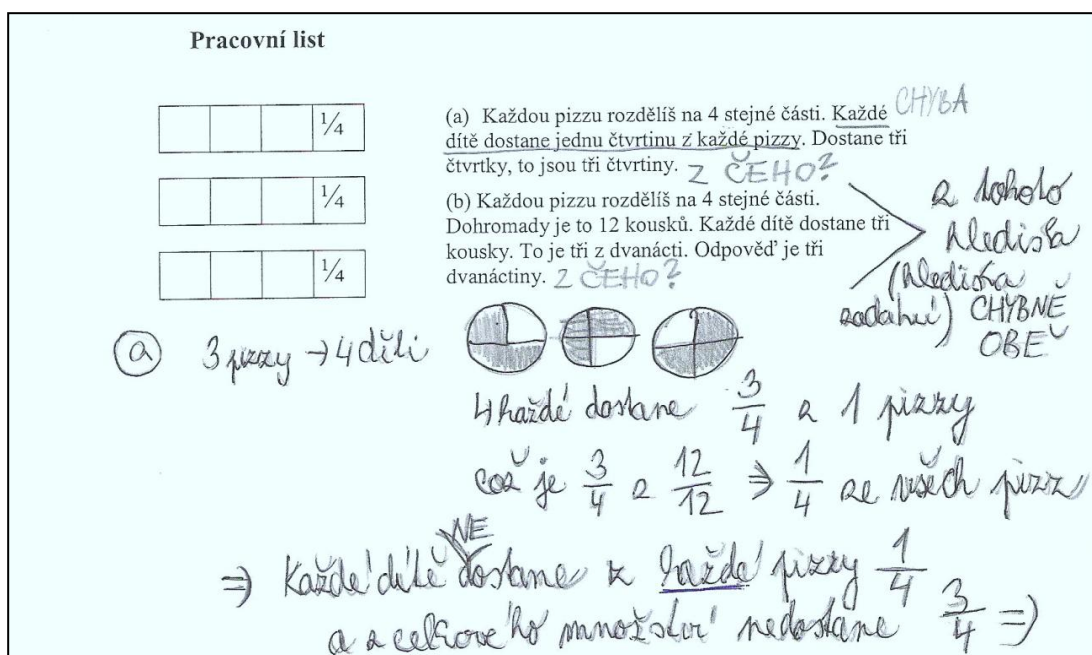 Pracovní list
¼
¼
¼
(a) Každou pizzu rozdělíš na 4 stejné části. Každé CHYBA
dítě dostane jednu čtvrtinu z každé pizzy. Dostane tři
čtvrtky, to jsou tři čtvrtiny. Z ČEHO?
(b) Každou pizzu rozdělíš na 4 stejné části.
Dohromady je to 12 kousků. Každé dítě dostane tři
kousky. To je tři z dvanácti. Odpověď je tři
dvanáctiny. Z ČEHO?
z tohoto
hlediska
(hlediska
zadání) CHYBNĚ
OBĚ
a 3 pizzy → 4 děti
každé dostane 3/4 z 1 pizzy
což je 3/4 z 12/12 ⇒ 1/4 ze všech pizz
⇒ Každé dítě NEdostane z každé pizzy 1/4
a z celkového množství nedostane 3/4 ⇒